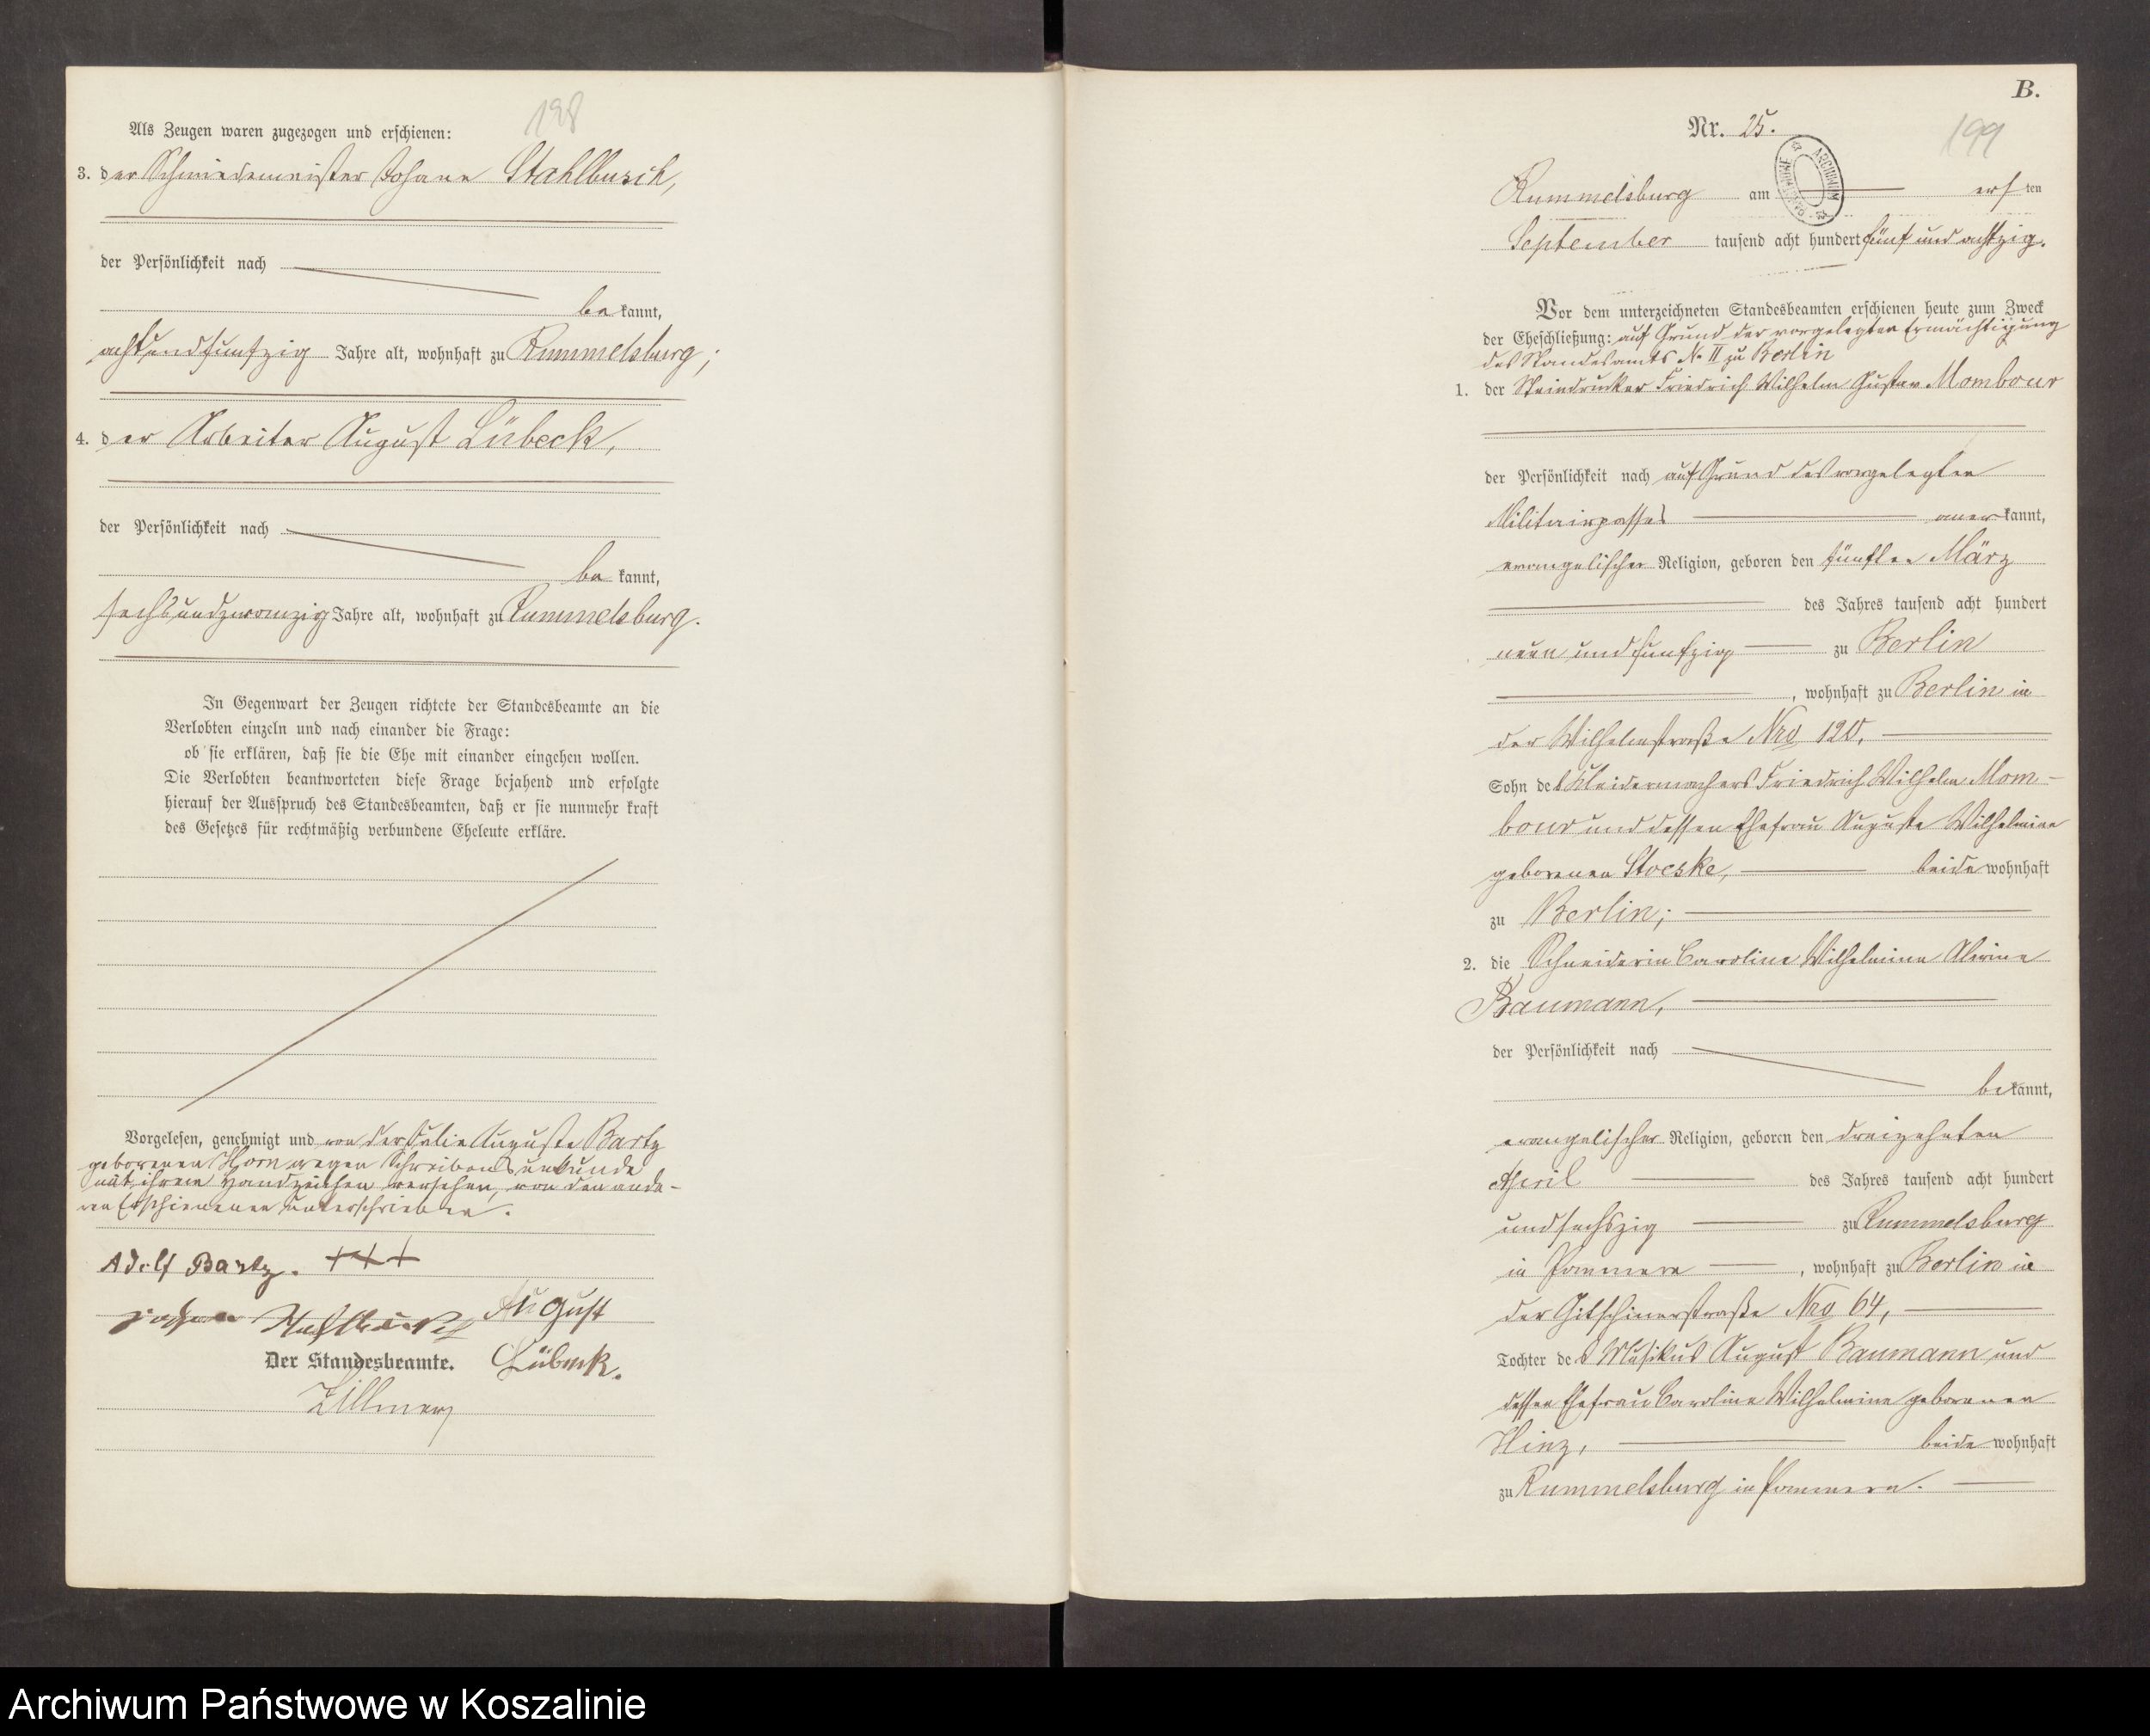 198
Als Zeugen waren zugezogen und erschienen:
3. der Schmiedemeister Johann Stahlbusch,
der Persönlichkeit nach
be kannt,
achtundfünfzig Jahre alt, wohnhaft zu Rummelsburg;
4. der Arbeiter August Lübeck,
der Persönlichkeit nach
be kannt,
sechsundzwanzig Jahre alt, wohnhaft zu Rummelsburg.
In Gegenwart der Zeugen richtete der Standesbeamte an die
Verlobten einzeln und nach einander die Frage:
ob sie erklären, daß sie die Ehe mit einander eingehen wollen.
Die Verlobten beantworteten diese Frage bejahend und erfolgte
hierauf der Ausspruch des Standesbeamten, daß er sie nunmehr kraft
des Gesetzes für rechtmäßig verbundene Eheleute erkläre.
Vorgelesen, genehmigt und von der Auguste Bartz
geborenen Horn wegen Schreibensunkunde
mit ihrem Handzeichen versehen, von den ande-
ren Erschienenen unterschrieben.
Adolf Bartz. +++
August
Der Standesbeamte. Lübeck.
Zillmer
B.
Nr. 25.
199
Rummelsburg am ersten
September tausend acht hundert fünf und achtzig.
Vor dem unterzeichneten Standesbeamten erschienen heute zum Zweck
der Eheschließung: auf Grund der vorgelegten Ermächtigung
des Standesamts No II zu Berlin
1. der Steindrucker Friedrich Wilhelm Gustav Mombour
der Persönlichkeit nach auf Grund des vorgelegten
Militairpasses anerkannt,
evangelischer Religion, geboren den fünften März
des Jahres tausend acht hundert
neun und fünfzig zu Berlin
, wohnhaft zu Berlin in
der Wilhelmstraße Nro 120,
Sohn des Kleidermachers Friedrich Wilhelm Mom-
bour und dessen Ehefrau Auguste Wilhelmine
geborenen Stoeske, beide wohnhaft
zu Berlin;
2. die Schneiderin Caroline Wilhelmine Alwine
Baumann,
der Persönlichkeit nach
be kannt,
evangelischer Religion, geboren den dreizehnten
April des Jahres tausend acht hundert
und sechszig zu Rummelsburg
in Pommern , wohnhaft zu Berlin in
der Gitschinerstraße Nro 64,
Tochter des Musikus August Baumann und
dessen Ehefrau Caroline Wilhelmine geborenen
Hinz, beide wohnhaft
zu Rummelsburg in Pommern.
Archiwum Państwowe w Koszalinie